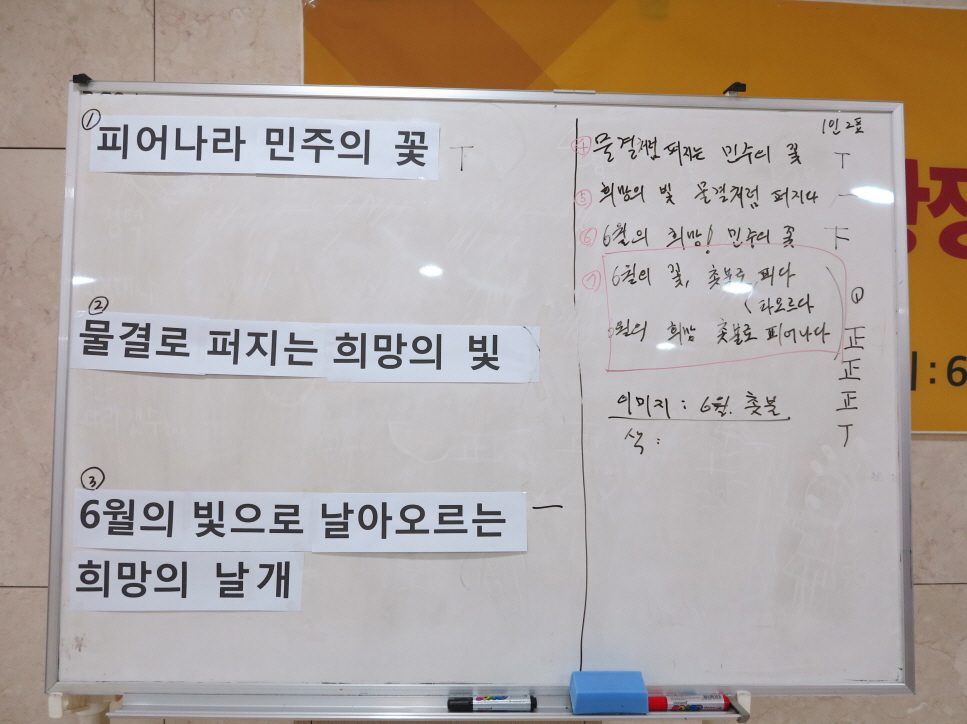 ①
피어나라 민주의 꽃 丅
②
물결로 퍼지는 희망의 빛
③
6월의 빛으로 날아오르는 一
희망의 날개
1인 2표
④ 물결처럼 퍼지는 민주의 꽃 丅
⑤ 희망의 빛 물결처럼 퍼지다 一
⑥ 6월의 희망! 민주의 꽃 下
⑦ 6월의 꽃, 촛불로 피다
타오르다
6월의 희망 촛불로 피어나다
正
正
正
丅
이미지 : 6월. 촛불
색 :
장
: 6